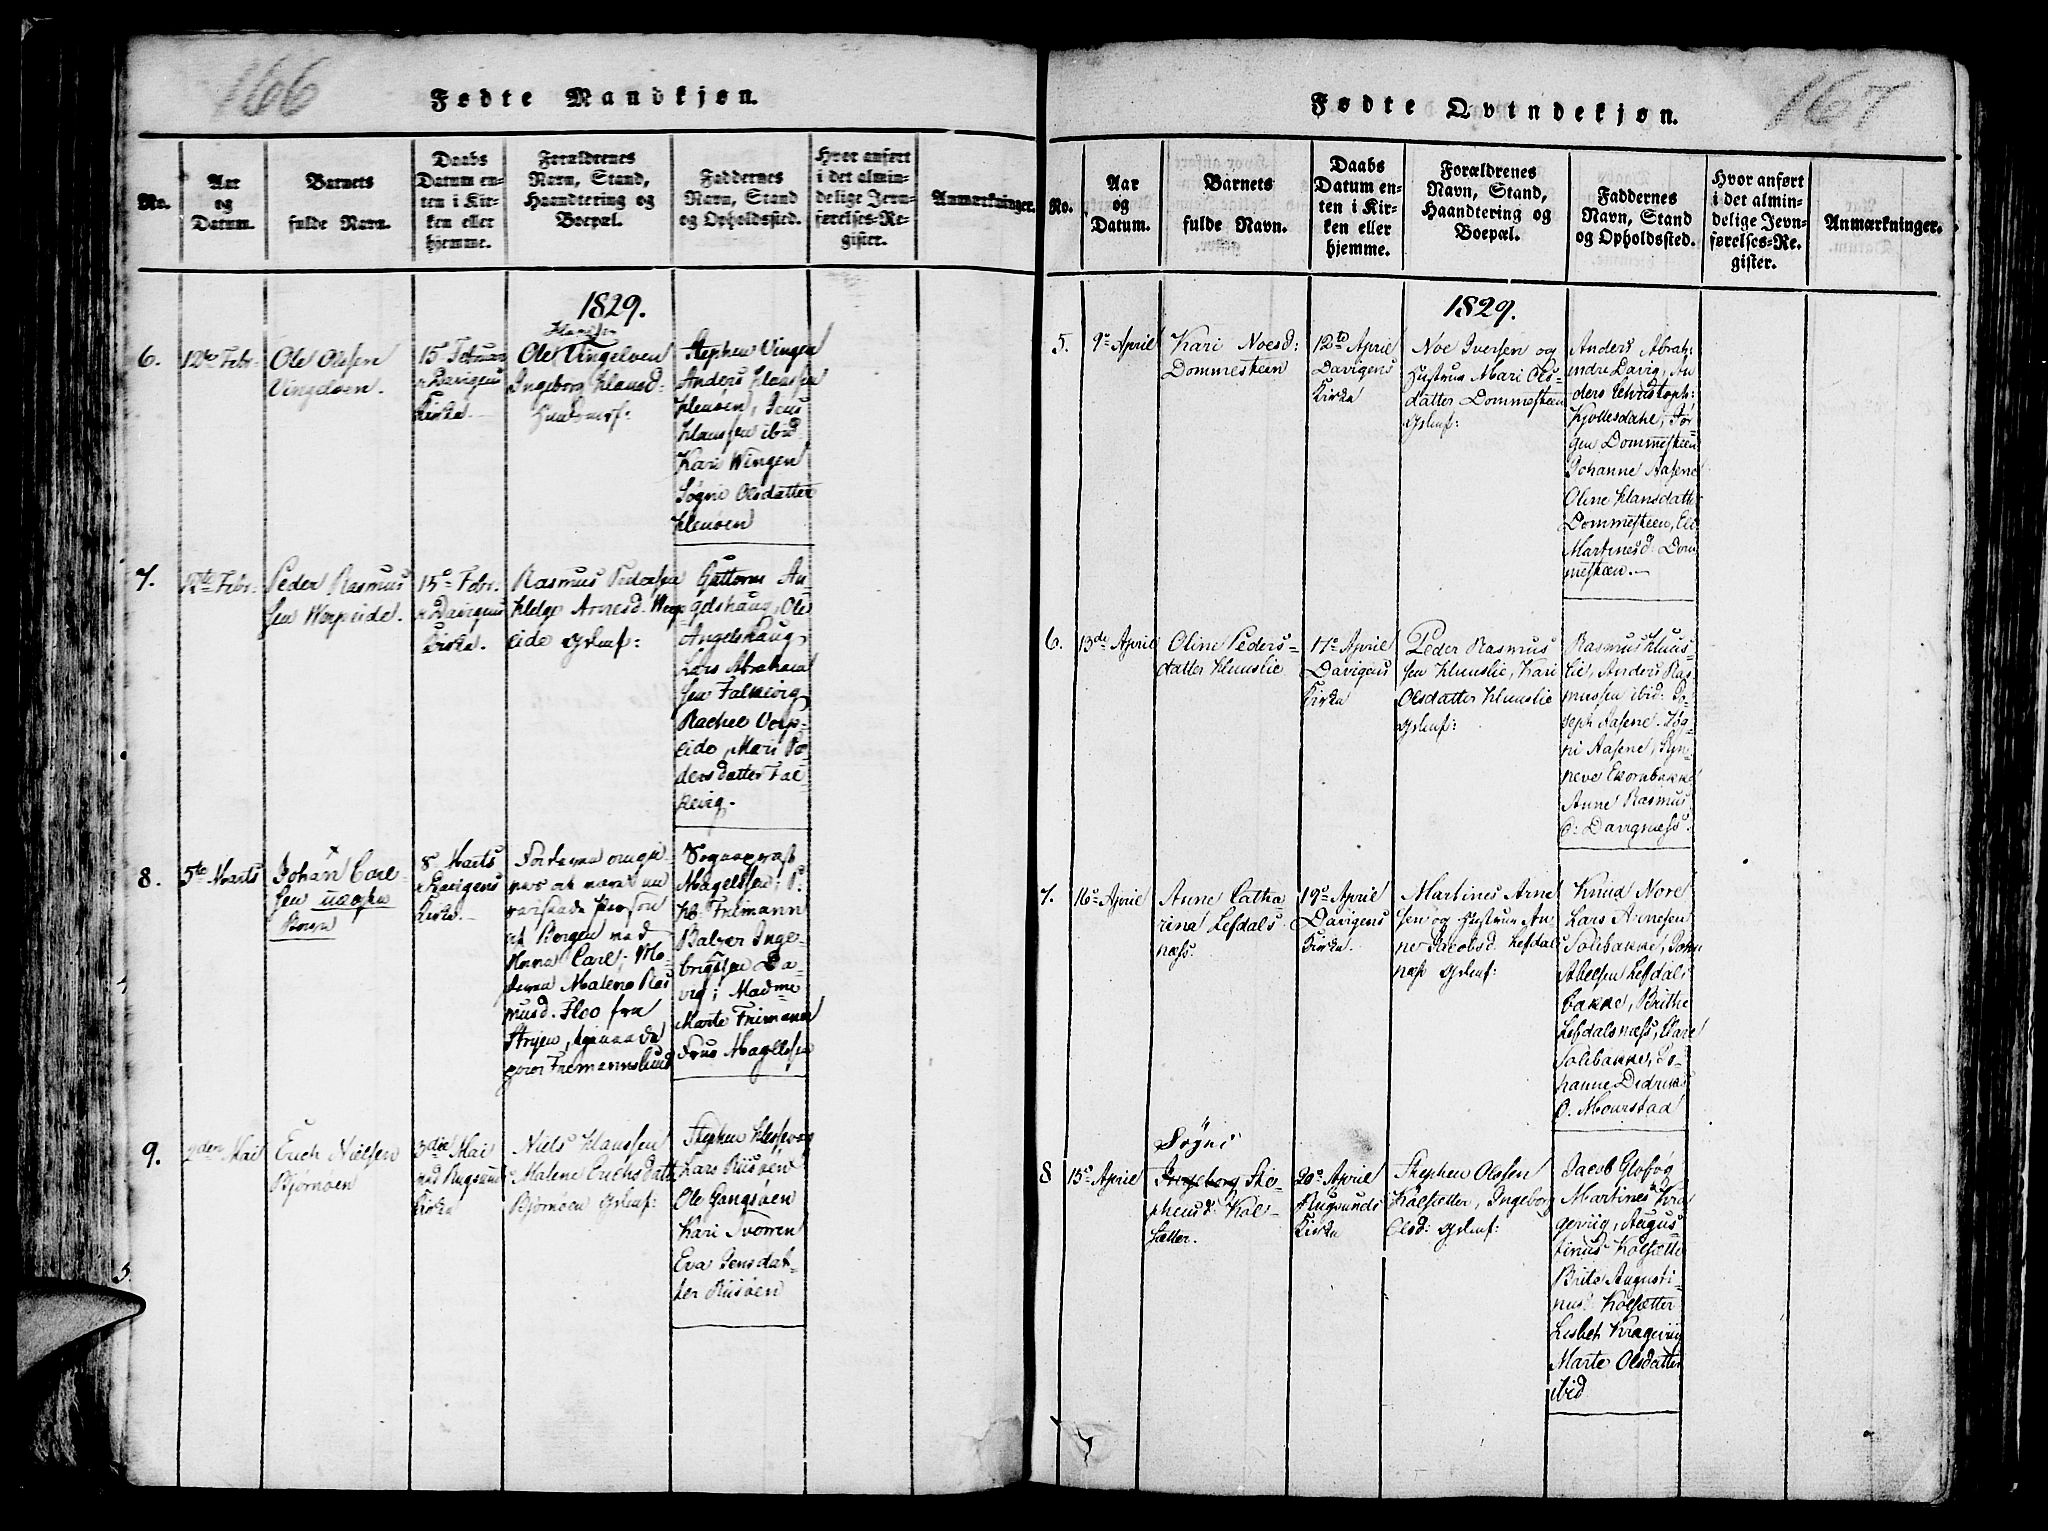 166
Fødte Mandkjøn.
No.
Aar
og
Datum.
Barnets
fulde Navn.
Daabs
Datum en-
ten i Kir-
ken eller
hjemme.
Forældrenes
Navn, Stand,
Haandtering og
Boepæl.
Faddernes
Navn, Stand
og Opholdssted.
Hvor anført
i det almin-
delige Jevn-
førelses-Re-
gister.
Anmærkninger.
1829.
6.
12te Febr.
Ole Olssen
Vingelven.
15 Februar
Davigens
Kirke
Ole Vingelven
Ingeborg Hansd:
Stephen Vingen
Anders Claussen
Hensøen, Jens
Claussen ibid.
Kari Wingen
Søgni Olsdatter
Hensøen
7.
12te Febr.
Peder Rasmus
sen Worpeide.
15de Febr.
Davigens
Kirke.
Rasmus Pedersen
Helge Arnesd. Worp
eide Gslmf:
Guttorm An-
gelshaug, Ole
Angelshaug
Lars Abraham
sen Falkevig
Rachel Vorp-
eide, Mari Pe-
dersdatter Fal-
kevig.
8.
5te Marts
Johan Carl-
sen uægte
8 Marts
Davigens
Kirke
af Bergen ved
Navn Carl; Mo-
deren Malene Ras
musd. Floo fra
Stryen, tjenende
paa Friemannslund
Sogneprest
Magelssen; P.
H. Friemann
Balzer Inge-
brigtsen Da-
vig; Madme
Marte Friemann
Frue Magelssen
9.
2den Mai
Erich Nielsen
Bjørnøen
3die Mai
ved Rugsund
Kirke
Niels Hanssen
Malene Erichsdatt
Bjørnøen Gslmf:
Stephen Hessevog
Lars Riisøen
Ole Gangsøen
Kari Tvorren
Eva Jensdat-
ter Riisøen
167
Fødte Qvindekjøn.
No.
Aar
og
Datum.
Barnets
fulde Navn.
Daabs
Datum en-
ten i Kir-
ken eller
hjemme.
Forældrenes
Navn, Stand,
Haandtering og
Boepæl.
Faddernes
Navn, Stand
og Opholdssted.
Hvor anført
i det almin-
delige Jevn-
førelses-Re-
gister.
Anmærkninger.
1829.
5.
9de April
Kari Noesd:
Dommesteen
12te April
Davigens
Kirke
Noe Iversen og
Hustrue Mari Ols-
datter Dommesteen
Gslmf:
Anders Abrah:
indre Davig, An-
ders Christoph:
Kjøllesdahl, Jør-
gen Dommesteen
Johanne Aasene
Oline Hansdatter
Dommesteen, Eli
Martinesd: Dom
mesteen.
6.
13de April
Oline Peders-
datter Huuslie
17de April
Davigens
Kirke
Peder Rasmus
sen Huuslie, Kari
Olsdatter Huuslie
Gslmf:
Rasmus Huus-
lie, Anders Ras-
mussen ibid: Jo-
seph Aasene. Søg-
ni Aasene, Syn-
neve Ekornbakke
Anne Rasmus
D: Davignæss.
7.
16de April
Anne Catha-
rina Lefdals
næss.
19de April
Davigens
Kirke.
Martines Arne
sen og Hustrue An-
ne Jacobsd. Lefdals
næss Gslmf:
Knud More
Lars Arnesen
Solibakke, John
Abelsen Lefdals-
bakke, Brithe
Lefdalsnæss, Mari
Solibakke, Jo-
hanne Didriks
D. Mourstad
8
15de April
Søgni
Ingeborg Ste-
phensd: Kol-
sætter.
20de April
Rugsunds
Kirke
Stephen Olssen
Kolsætter, Ingeborg
Olsd: Gslmf:
Jacob Glofog
Martines Kra
gevig, Augus
tinus Kolsætter
Brite Augusti-
nus: Kolsætter
Lisbet Kragevig
Marte Olsdatter
ibid